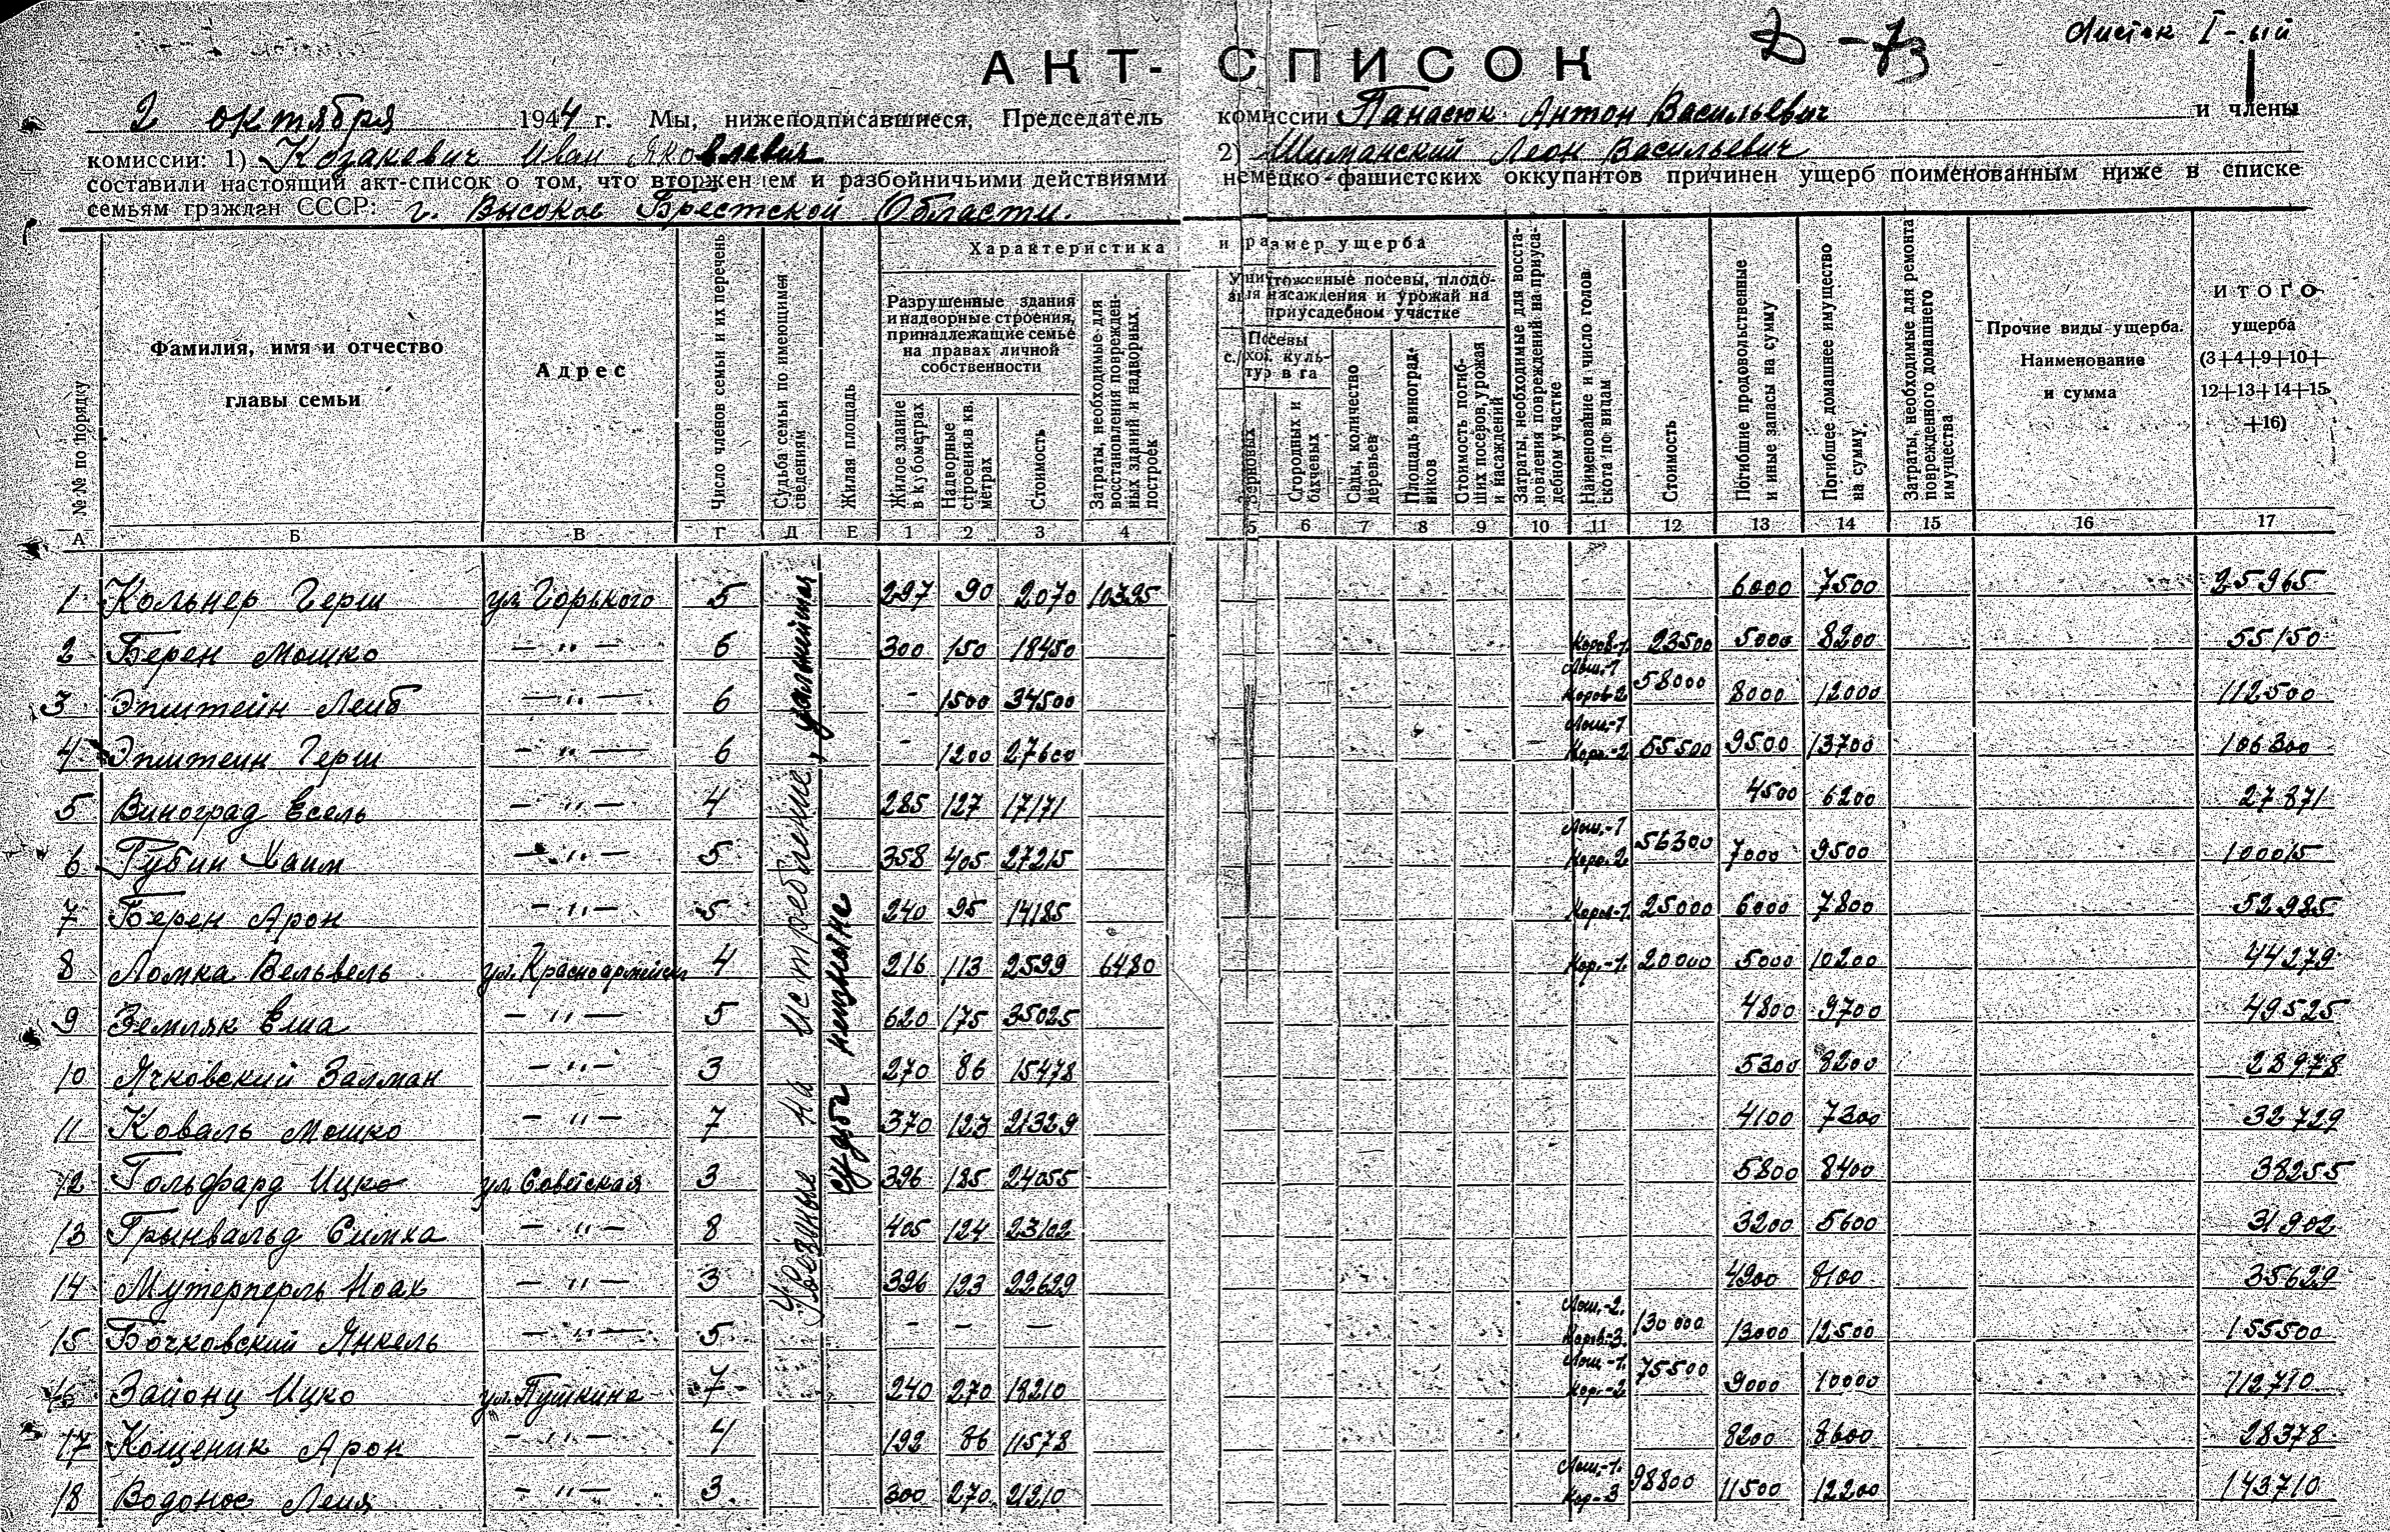 Листок I-ый
Д-73
АКТ-СПИСОК
2 октября 1944 г. Мы, нижеподписавшиеся, Председатель комиссии Панасюк Антон Васильевич и члены
комиссии: 1) Козакевич Иван Яковлевич 2) Шиманский Леон Васильевич
составили настоящий акт-список о том, что вторжением и разбойничьими действиями немецко-фашистских оккупантов причинен ущерб поименованным ниже в списке
семьям граждан СССР: г. Высоков Брестской Области.
№№ по порядку
Фамилия, имя и отчество главы семьи
Адрес
Число членов семьи и их перечень
Судьба семьи по имеющимся сведениям
Жилая площадь
Характеристика и размер ущерба
Разрушенные здания и надворные строения, принадлежащие семье на правах личной собственности
Жилое здание в кубометрах
Надворные строения в кв. метрах
Стоимость
Затраты, необходимые для восстановления поврежденных зданий и надворных построек
Уничтоженные посевы, плодовыя насаждения и урожай на приусадебном участке
Посевы с./хоз. культур в га
Зерновых
Огородных и бахчевых
Сады, количество деревьев
Площадь виноградников
Стоимость погибших посевов, урожая и насаждений
Затраты, необходимые для восстановления повреждений на приусадебном участке
Наименование и число голов скота по видам
Стоимость
Погибшие продовольственные и иные запасы на сумму
Погибшее домашнее имущество на сумму.
Затраты, необходимые для ремонта поврежденного домашнего имущества
Прочие виды ущерба. Наименование и сумма
ИТОГО ущерба (3+4+9+10+12+13+14+15+16)
А Б В Г Д Е 1 2 3 4 5 6 7 8 9 10 11 12 13 14 15 16 17
Увезиные на истребление, дальнійшая
судьба неизвыне
1 Кольнер Герш ул Горького 5 297 90 2070 10395 6000 7500 25965
2 Берен Мошко — " — 6 300 150 18450 Коров-1. 23500 5000 8200 55150
3 Эпштейн Лейб — " — 6 - 1500 34500 Лош.-1 Коров-2 58000 8000 12000 112500
4 Эпштеин Герш — " — 6 - 1200 27600 Лош.-1 Коров.-2 55500 9500 13700 106300
5 Виноград Есель — " — 4 285 127 17171 4500 6200 27871
6 Губин Хаим — " — 5 358 405 27215 Лош.-1 Коро.-2 56300 7000 9500 100015
7 Берен Арон — " — 5 240 95 14185 Коров-1. 25000 6000 7800 52985
8 Ломка Вельвель ул. Красноармейск 4 216 113 2599 6480 Кор.-1. 20000 5000 10200 44279
9 Земляк Еша — " — 5 620 175 35025 4800 9700 49525
10 Ячковский Залман — " — 3 270 86 15478 5300 8200 28978
11 Коваль Мошко — " — 7 370 123 21329 4100 7300 32729
12 Гольфард Ицко ул Советская 3 396 185 24055 5800 8400 38255
13 Грынвальд Симха — " — 8 405 124 23102 3200 5600 31902
14 Мутерперль Ноах — " — 3 396 123 22629 4900 8100 35629
15 Бочковский Янкель — " — 5 - — — Лош.-2. Коров-3. 130000 13000 12500 155500
16 Зайонц Ицко ул. Пушкина 7 240 270 18210 Лош-1. Кор.-2 75500 9000 10000 112710
17 Кощеник Арон — " — 4 192 86 11578 8200 8600 28378
18 Водонос Лейя — " — 3 300 270 21210 Лош.-1. Кор-3 98800 11500 12200 143710